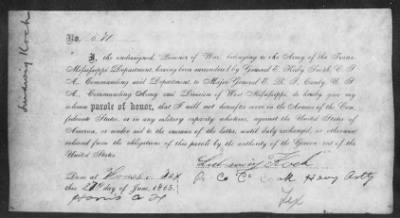 No.
I, the undersigned Prisoner of War, belonging to the Army of the Trans-
Mississippi Department, having been surrendered by General E. Kirby Smith, C. S.
A., Commanding said Department, to Major General E. R. S. Canby, U. S.
A., Commanding Army and Division of West Mississippi, do hereby give my
solemn parole of honor, that I will not hereafter serve in the Armies of the Con-
federate States, or in any military capacity whatever, against the United States of
America, or render aid to the enemies of the latter, until duly exchanged, or otherwise
released from the obligations of this parole by the authority of the Government of the
United States.
Ludwig Koch
Done at
Co Cook Heavy Artty
this day of June, 1865.
Tex
Ludwig Koch